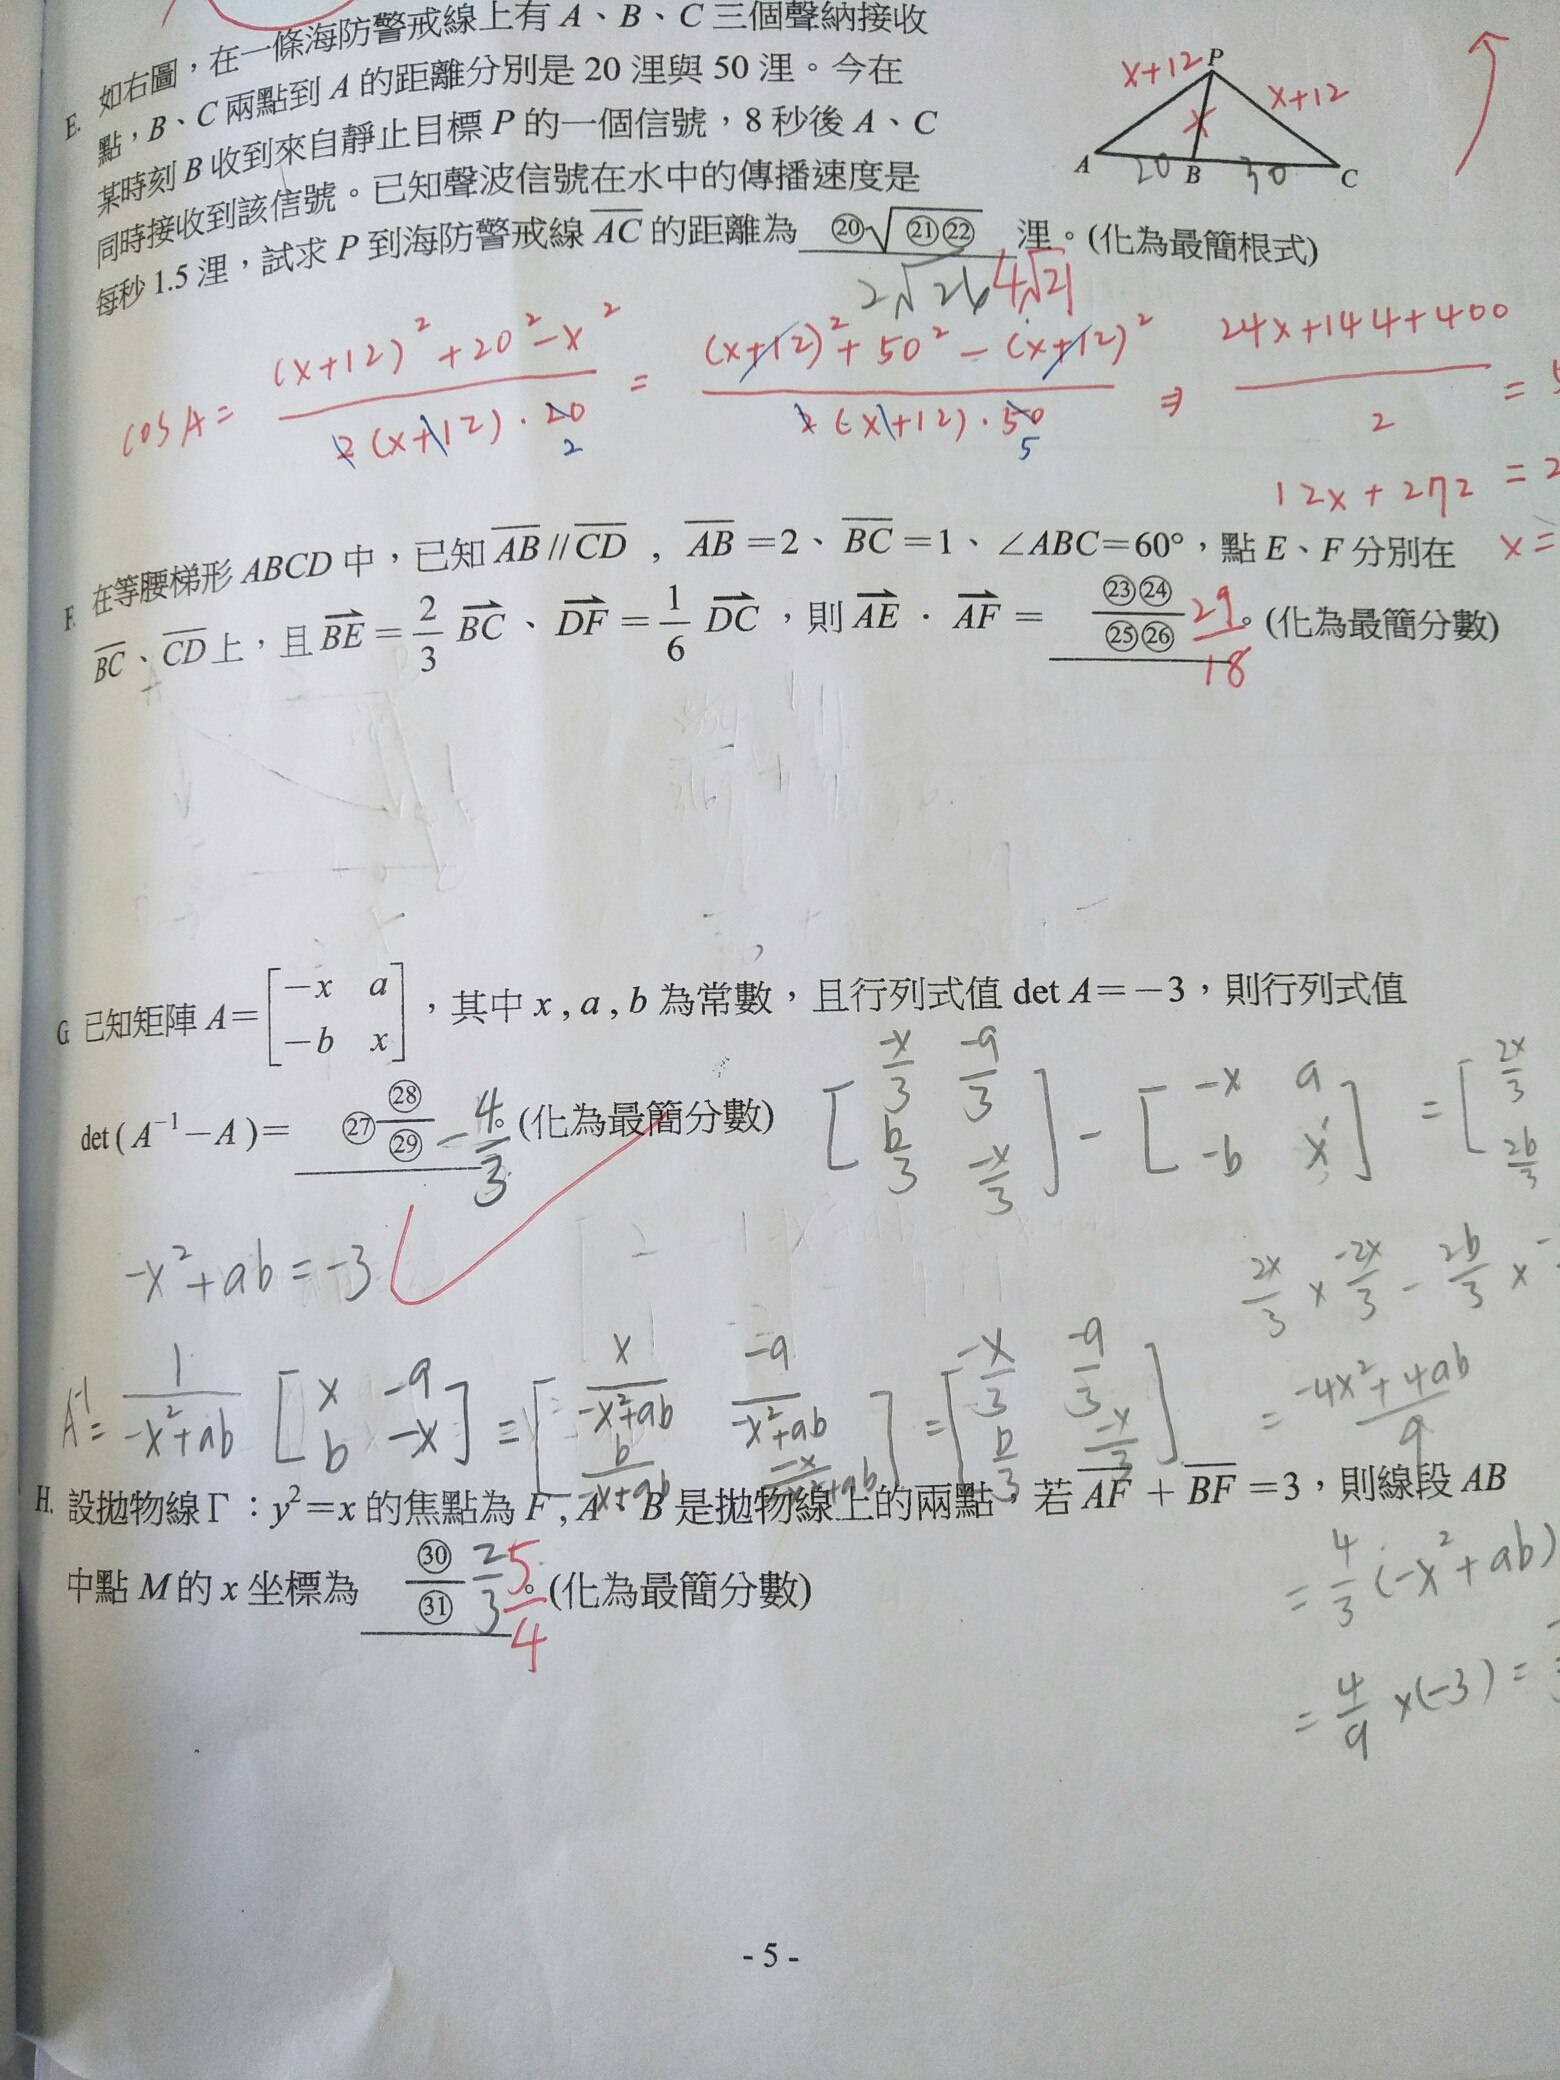 E. 如右圖，在一條海防警戒線上有 A、B、C 三個聲納接收
點，B、C 兩點到 A 的距離分別是 20 浬與 50 浬。今在
某時刻 B 收到來自靜止目標 P 的一個信號，8 秒後 A、C
同時接收到該信號。已知聲波信號在水中的傳播速度是
每秒 1.5 浬，試求 P 到海防警戒線 \overline{AC} 的距離為 ⑳√㉑㉒ 浬。(化為最簡根式)
2√26 4√21
P
x+12 x x+12
A 20 B 30 C
cosA = \frac{(x+12)^2+20^2-x^2}{2(x+12)·20} = \frac{(x+12)^2+50^2-(x+12)^2}{2(x+12)·50} ⇒ \frac{24x+144+400}{2} =
2 5
12x+272 =
x=
F. 在等腰梯形 ABCD 中，已知 \overline{AB}//\overline{CD}，\overline{AB}=2、\overline{BC}=1、∠ABC=60°，點 E、F 分別在
\overline{BC}、\overline{CD}上，且 \overrightarrow{BE}=\frac{2}{3}\overrightarrow{BC}、\overrightarrow{DF}=\frac{1}{6}\overrightarrow{DC}，則 \overrightarrow{AE}·\overrightarrow{AF}= \frac{㉓㉔}{㉕㉖} \frac{29}{18}。(化為最簡分數)
G. 已知矩陣 A=[−x a; −b x]，其中 x , a , b 為常數，且行列式值 det A=−3，則行列式值
det(A⁻¹−A)= ㉗\frac{㉘}{㉙} -\frac{4}{3}。(化為最簡分數)
[\frac{-x}{3} \frac{-a}{3}; \frac{b}{3} \frac{-x}{3}] - [-x a; -b x] = [\frac{2x}{3}; \frac{2b}{3}
-x²+ab=-3
\frac{2x}{3}×\frac{-2x}{3}-\frac{2b}{3}×
A⁻¹=\frac{1}{-x²+ab}[x -a; b -x]=[\frac{x}{-x²+ab} \frac{-a}{-x²+ab}; \frac{b}{-x²+ab} \frac{-x}{-x²+ab}]=[\frac{-x}{3} \frac{-a}{3}; \frac{b}{3} \frac{-x}{3}]
=\frac{-4x²+4ab}{9}
H. 設拋物線Γ：y²=x 的焦點為 F , A、B 是拋物線上的兩點，若 \overline{AF}+\overline{BF}=3，則線段 AB
中點 M的 x 坐標為 \frac{㉚}{㉛} \frac{2}{3} \frac{5}{4}。(化為最簡分數)
=\frac{4}{3}(-x²+ab)
=\frac{4}{9}×(-3)=
- 5 -